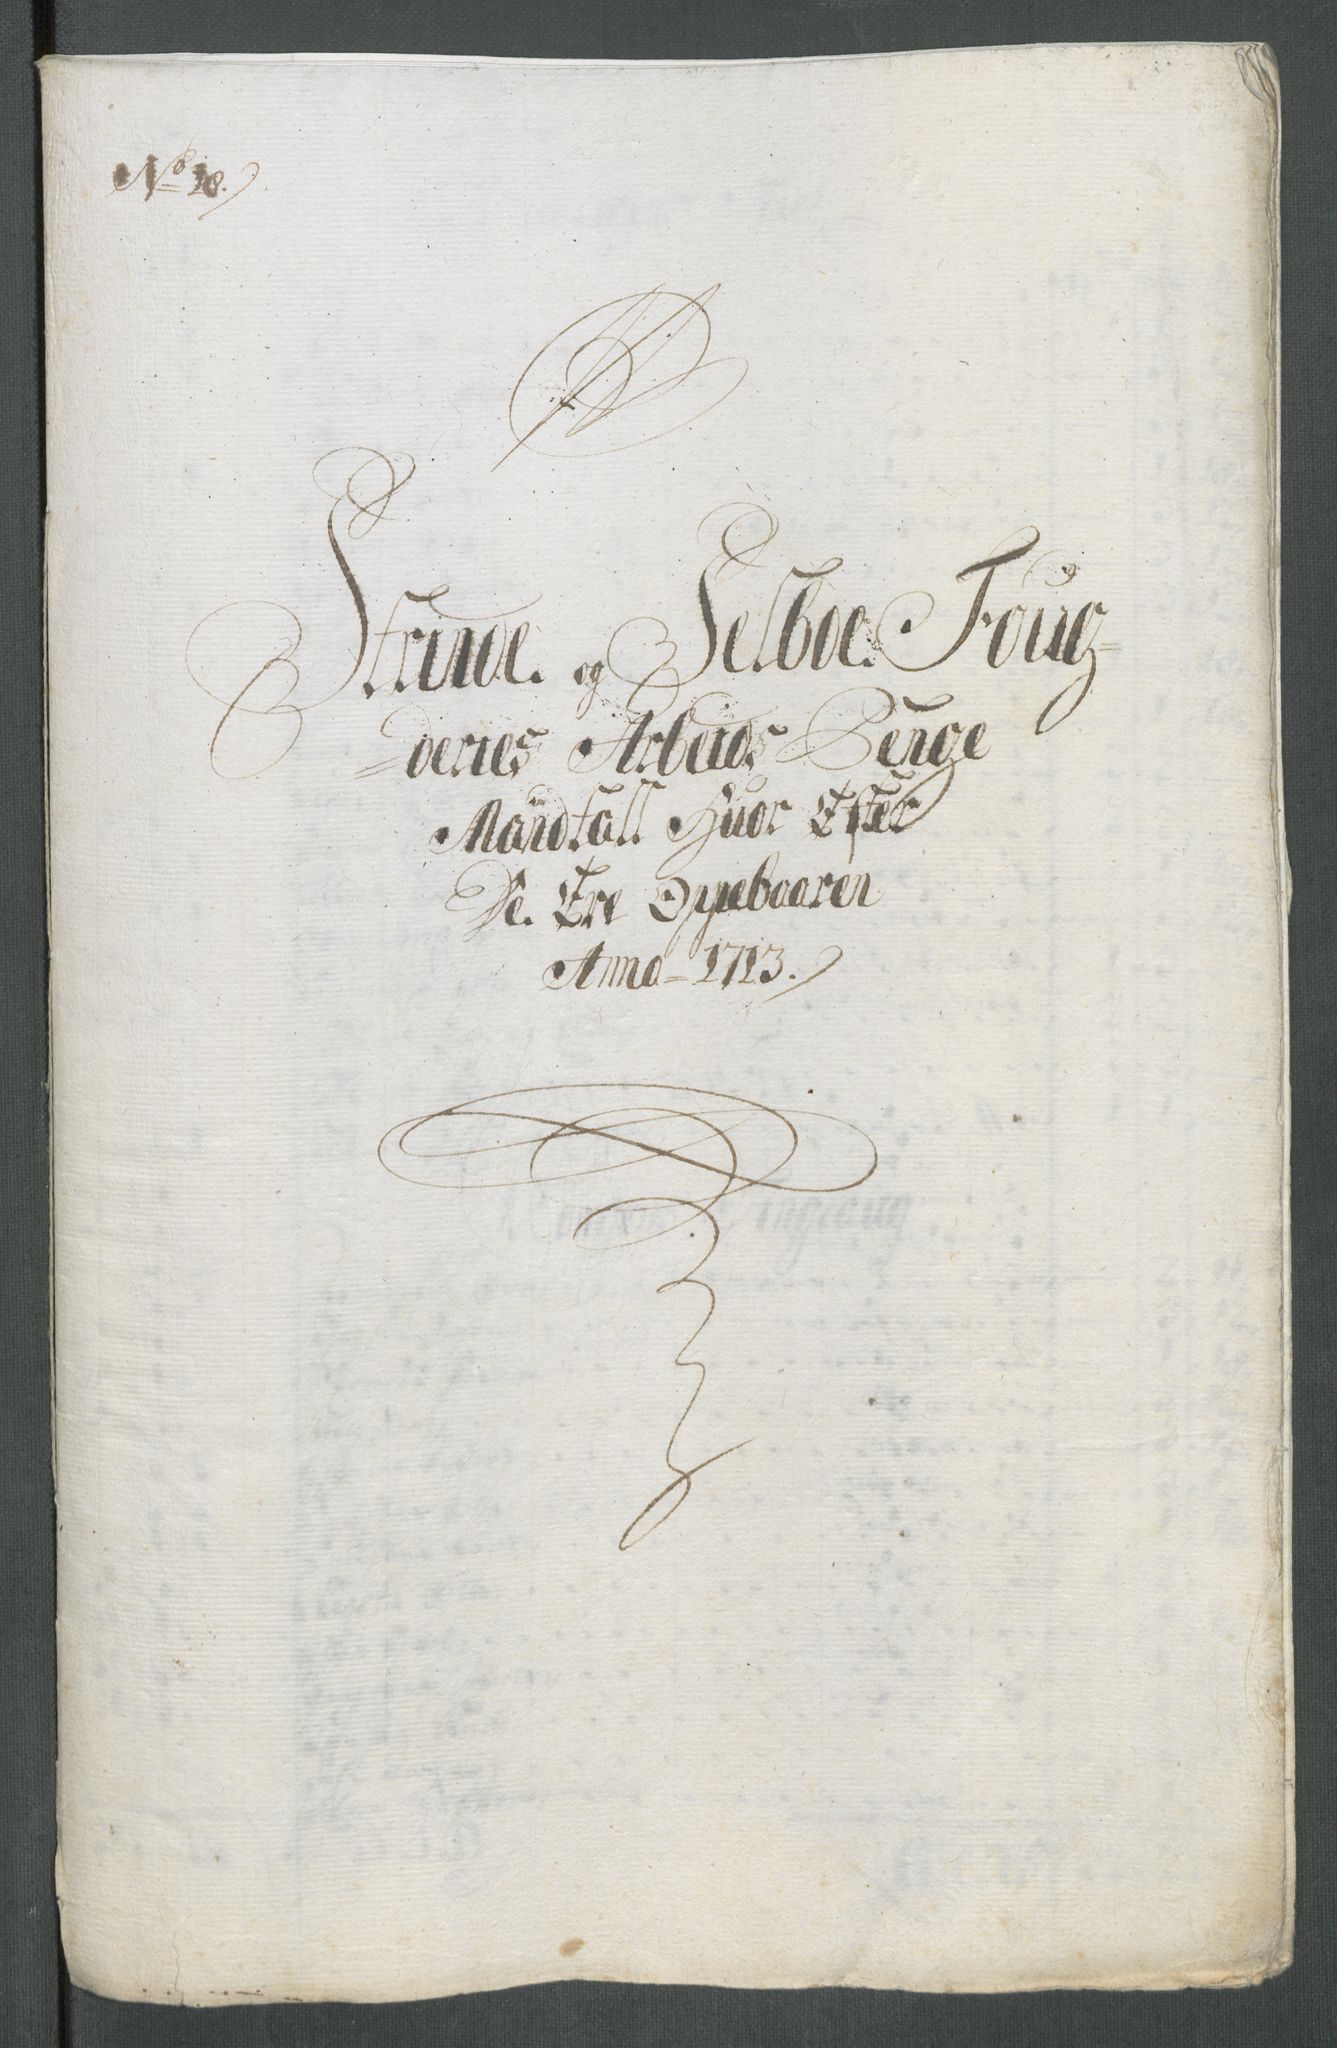 No 18.
Strinde. og Selboe. Foug=
=deries Arbeids Penge
Mandtall Huor Efter
De. Ere Oppebaaren
Anno= 1713.